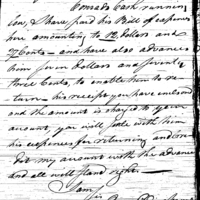 Comrads Cash runnin
son, & have paid his Bill of expences
here amounting to 12 Dollars and
72 Cents - and have also advanced
him seven Dollars and seventy
three Cents, to enable him to re-
turn - his receipt you have enclosed
and the amount is charged to your
account, you will settle with him
his expences for returning and cre-
dit my account with the advance
and all will stand right -
I am